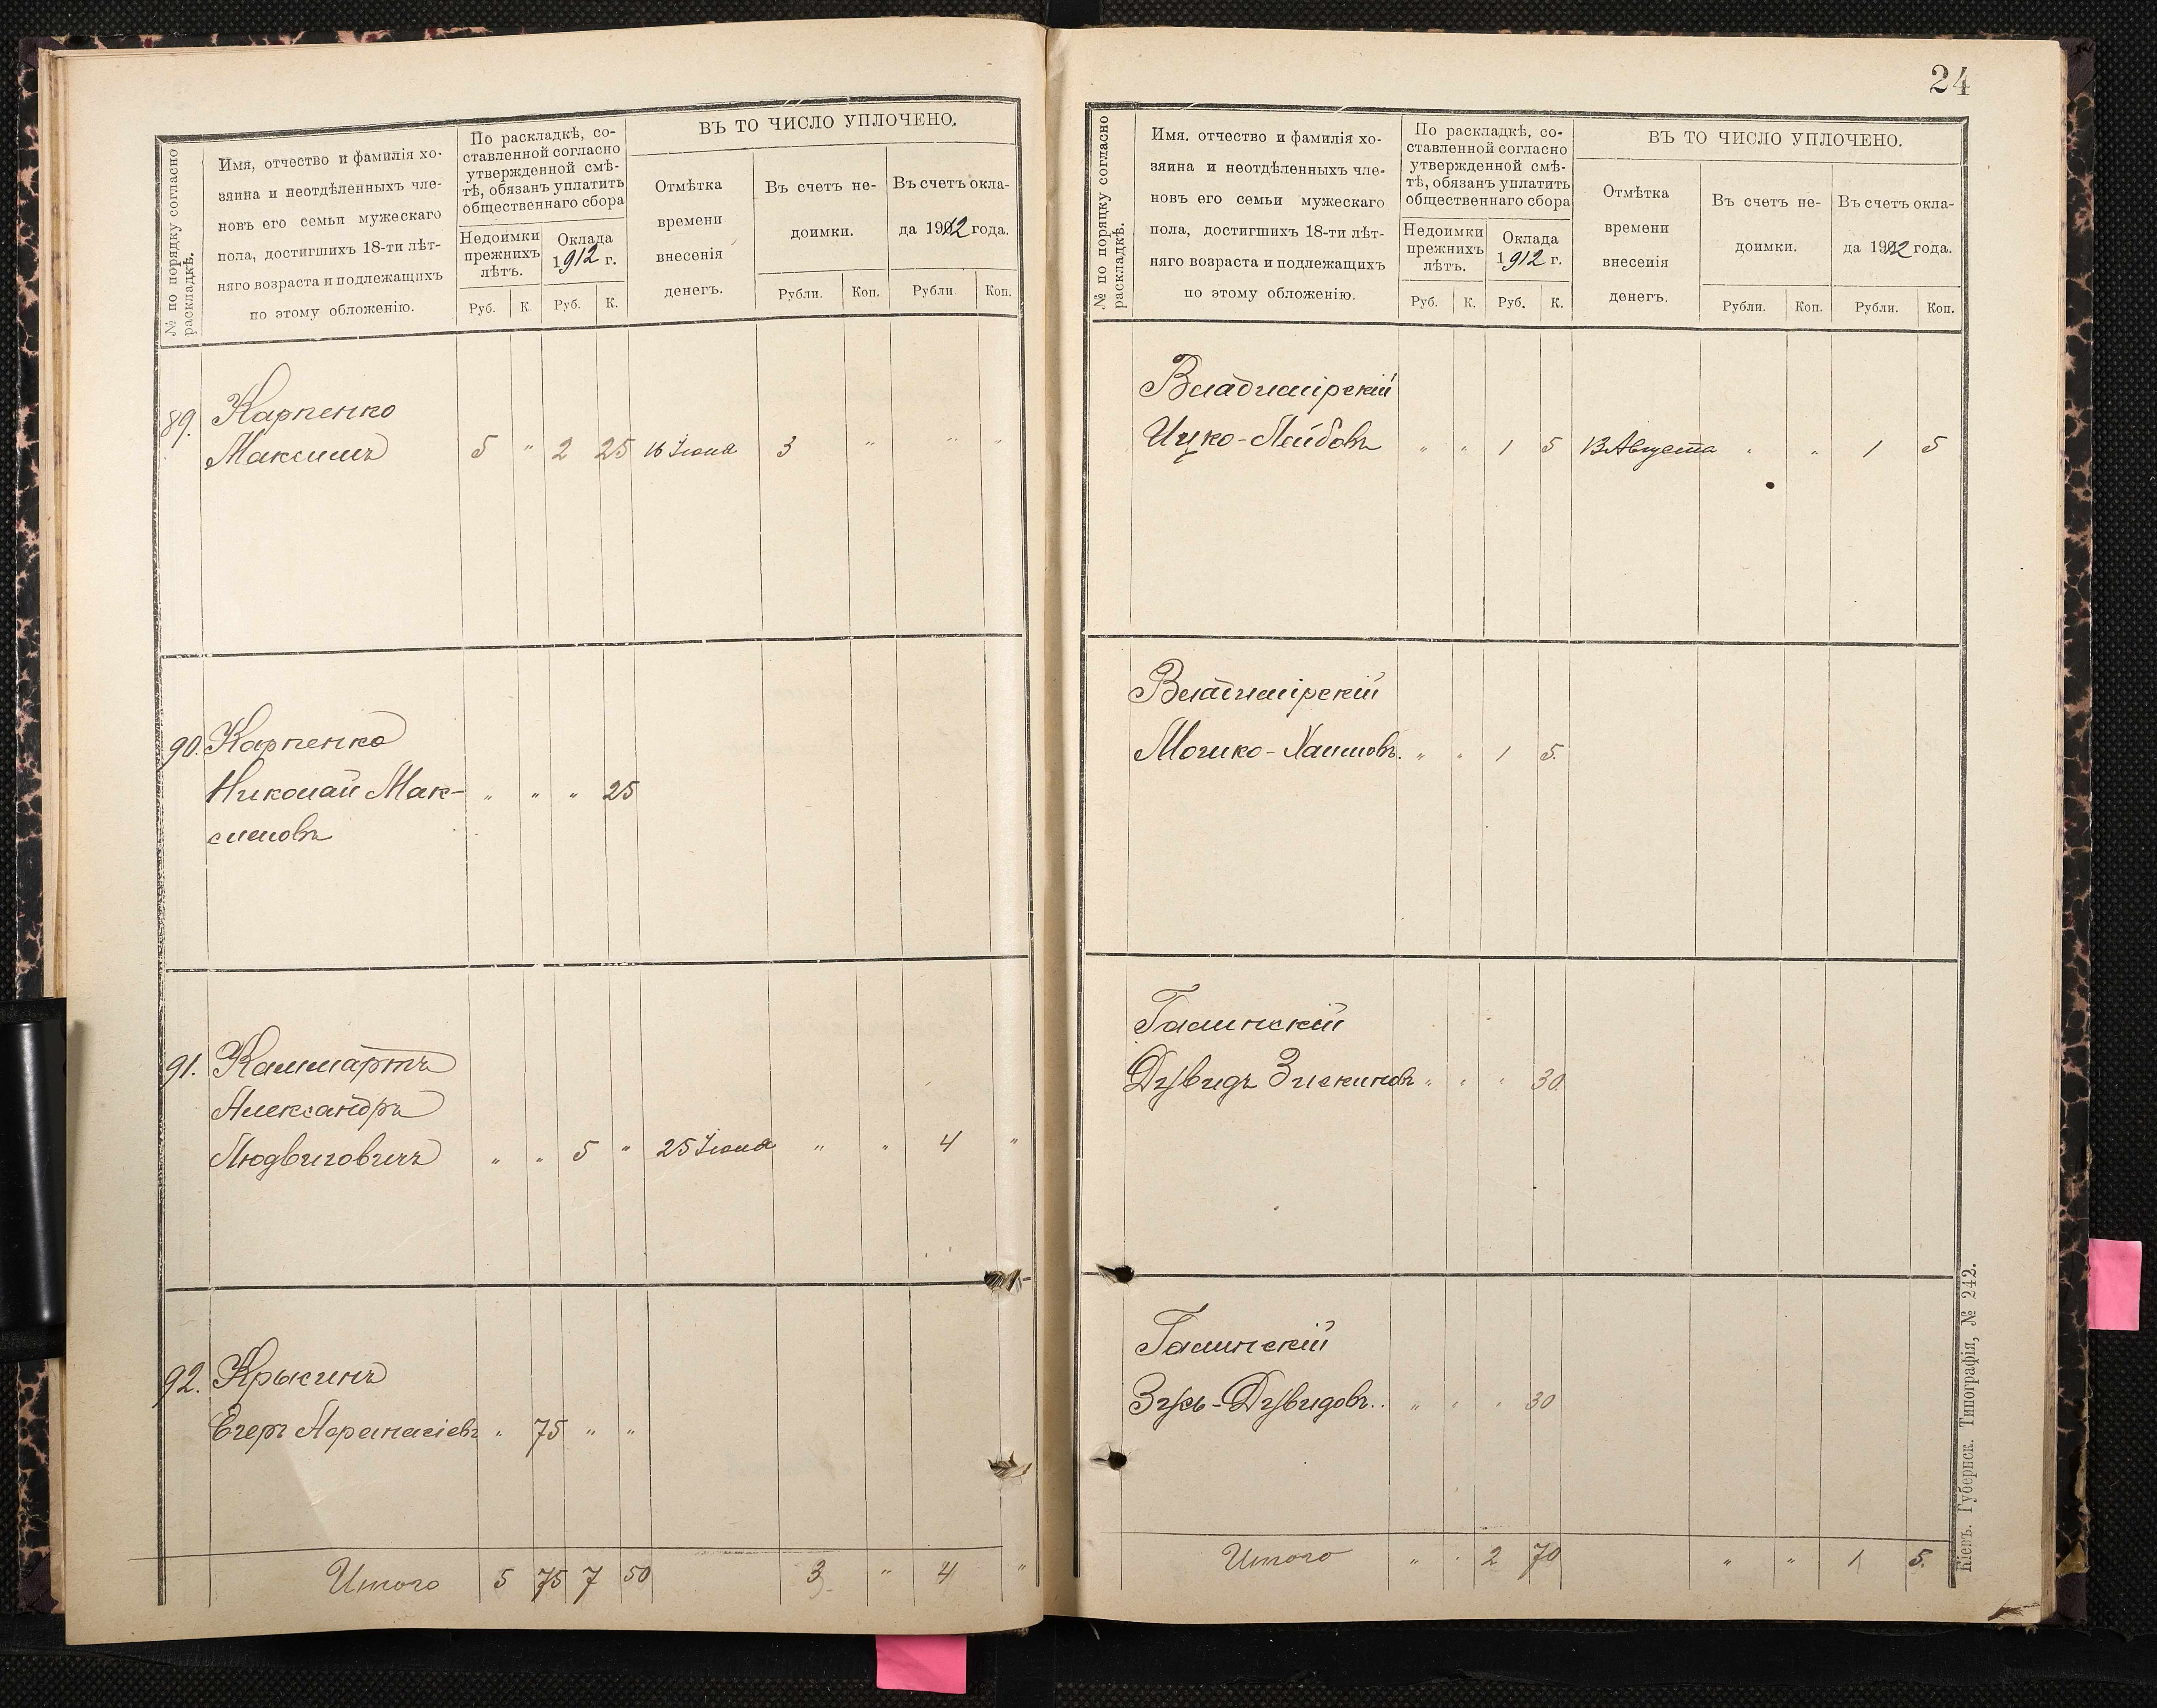 № по порядку согласно
раскладкѣ.
Имя, отчество и фамилія хо-
зяина и неотдѣленныхъ чле-
новъ его семьи мужескаго
пола, достигшихъ 18-ти лѣт-
няго возраста и подлежащихъ
по этому обложенію.
По раскладкѣ, со-
ставленной согласно
утвержденной смѣ-
тѣ, обязанъ уплатить
общественнаго сбора
Недоимки
прежнихъ
лѣтъ.
Оклада
1912 г.
Руб. К. Руб. К.
ВЪ ТО ЧИСЛО УПЛОЧЕНО.
Отмѣтка
времени
внесенія
денегъ.
Въ счетъ не-
доимки.
Въ счетъ окла-
да 1912 года.
Рубли. Коп. Рубли Коп.
89. Карпенко
Максимъ 5 " 2 25 16 Іюня 3 " " "
90. Карпенко
Николай Мак- " " " 25
симовъ
91. Каммартъ
Александръ
Людвиговичъ " " 5 " 25 Іюня " " 4 "
92. Крыкинъ
Егоръ Афанасіевъ " 75 " "
Итого 5 75 7 50 3 " 4 "
24
№ по порядку согласно
раскладкѣ.
Имя. отчество и фамилія хо-
зяина и неотдѣленныхъ чле-
новъ его семьи мужескаго
пола, достигшихъ 18-ти лѣт-
няго возраста и подлежащихъ
по этому обложенію.
По раскладкѣ, со-
ставленной согласно
утвержденной смѣ-
тѣ, обязанъ уплатить
общественнаго сбора
Недоимки
прежнихъ
лѣтъ.
Оклада
1912 г.
Руб. К. Руб. К.
ВЪ ТО ЧИСЛО УПЛОЧЕНО.
Отмѣтка
времени
внесенія
денегъ.
Въ счетъ не-
доимки.
Въ счетъ окла-
да 1912 года.
Рубли. Коп. Рубли. Коп.
Владимірскій
Ицко-Лейбовъ " " 1 5 13 Августа " " 1 5
Владимірскій
Мошко-Хаимовъ. " " 1 5.
Галинскій
Дувидъ Зискиновъ " " " 30
Галинскій
Зусь-Дувидовъ.. " " " 30
Итого " " 2 70 " " 1 5.
Кіевъ. Губернск. Типографія, № 242.